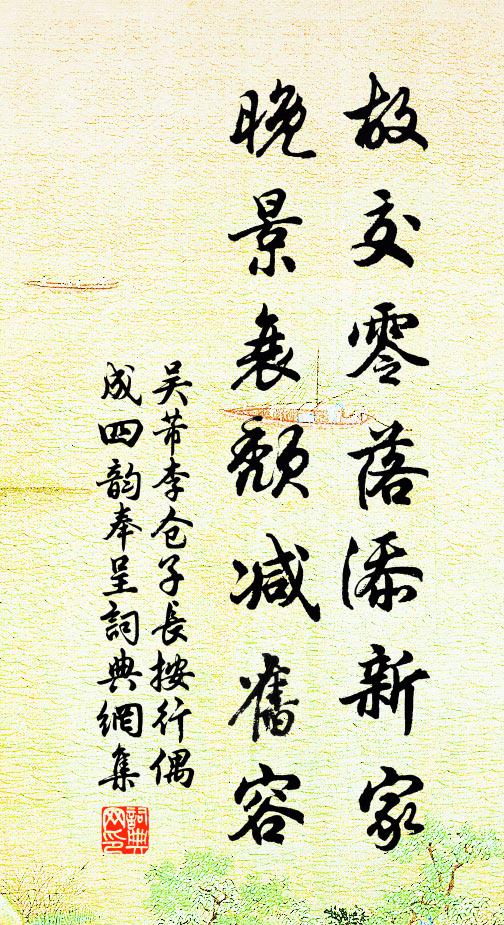 故交零落添新家
晚景衰頹减舊容
吴芾李仓子長按行偶
成四韵奉呈詞典網集
詞典网印